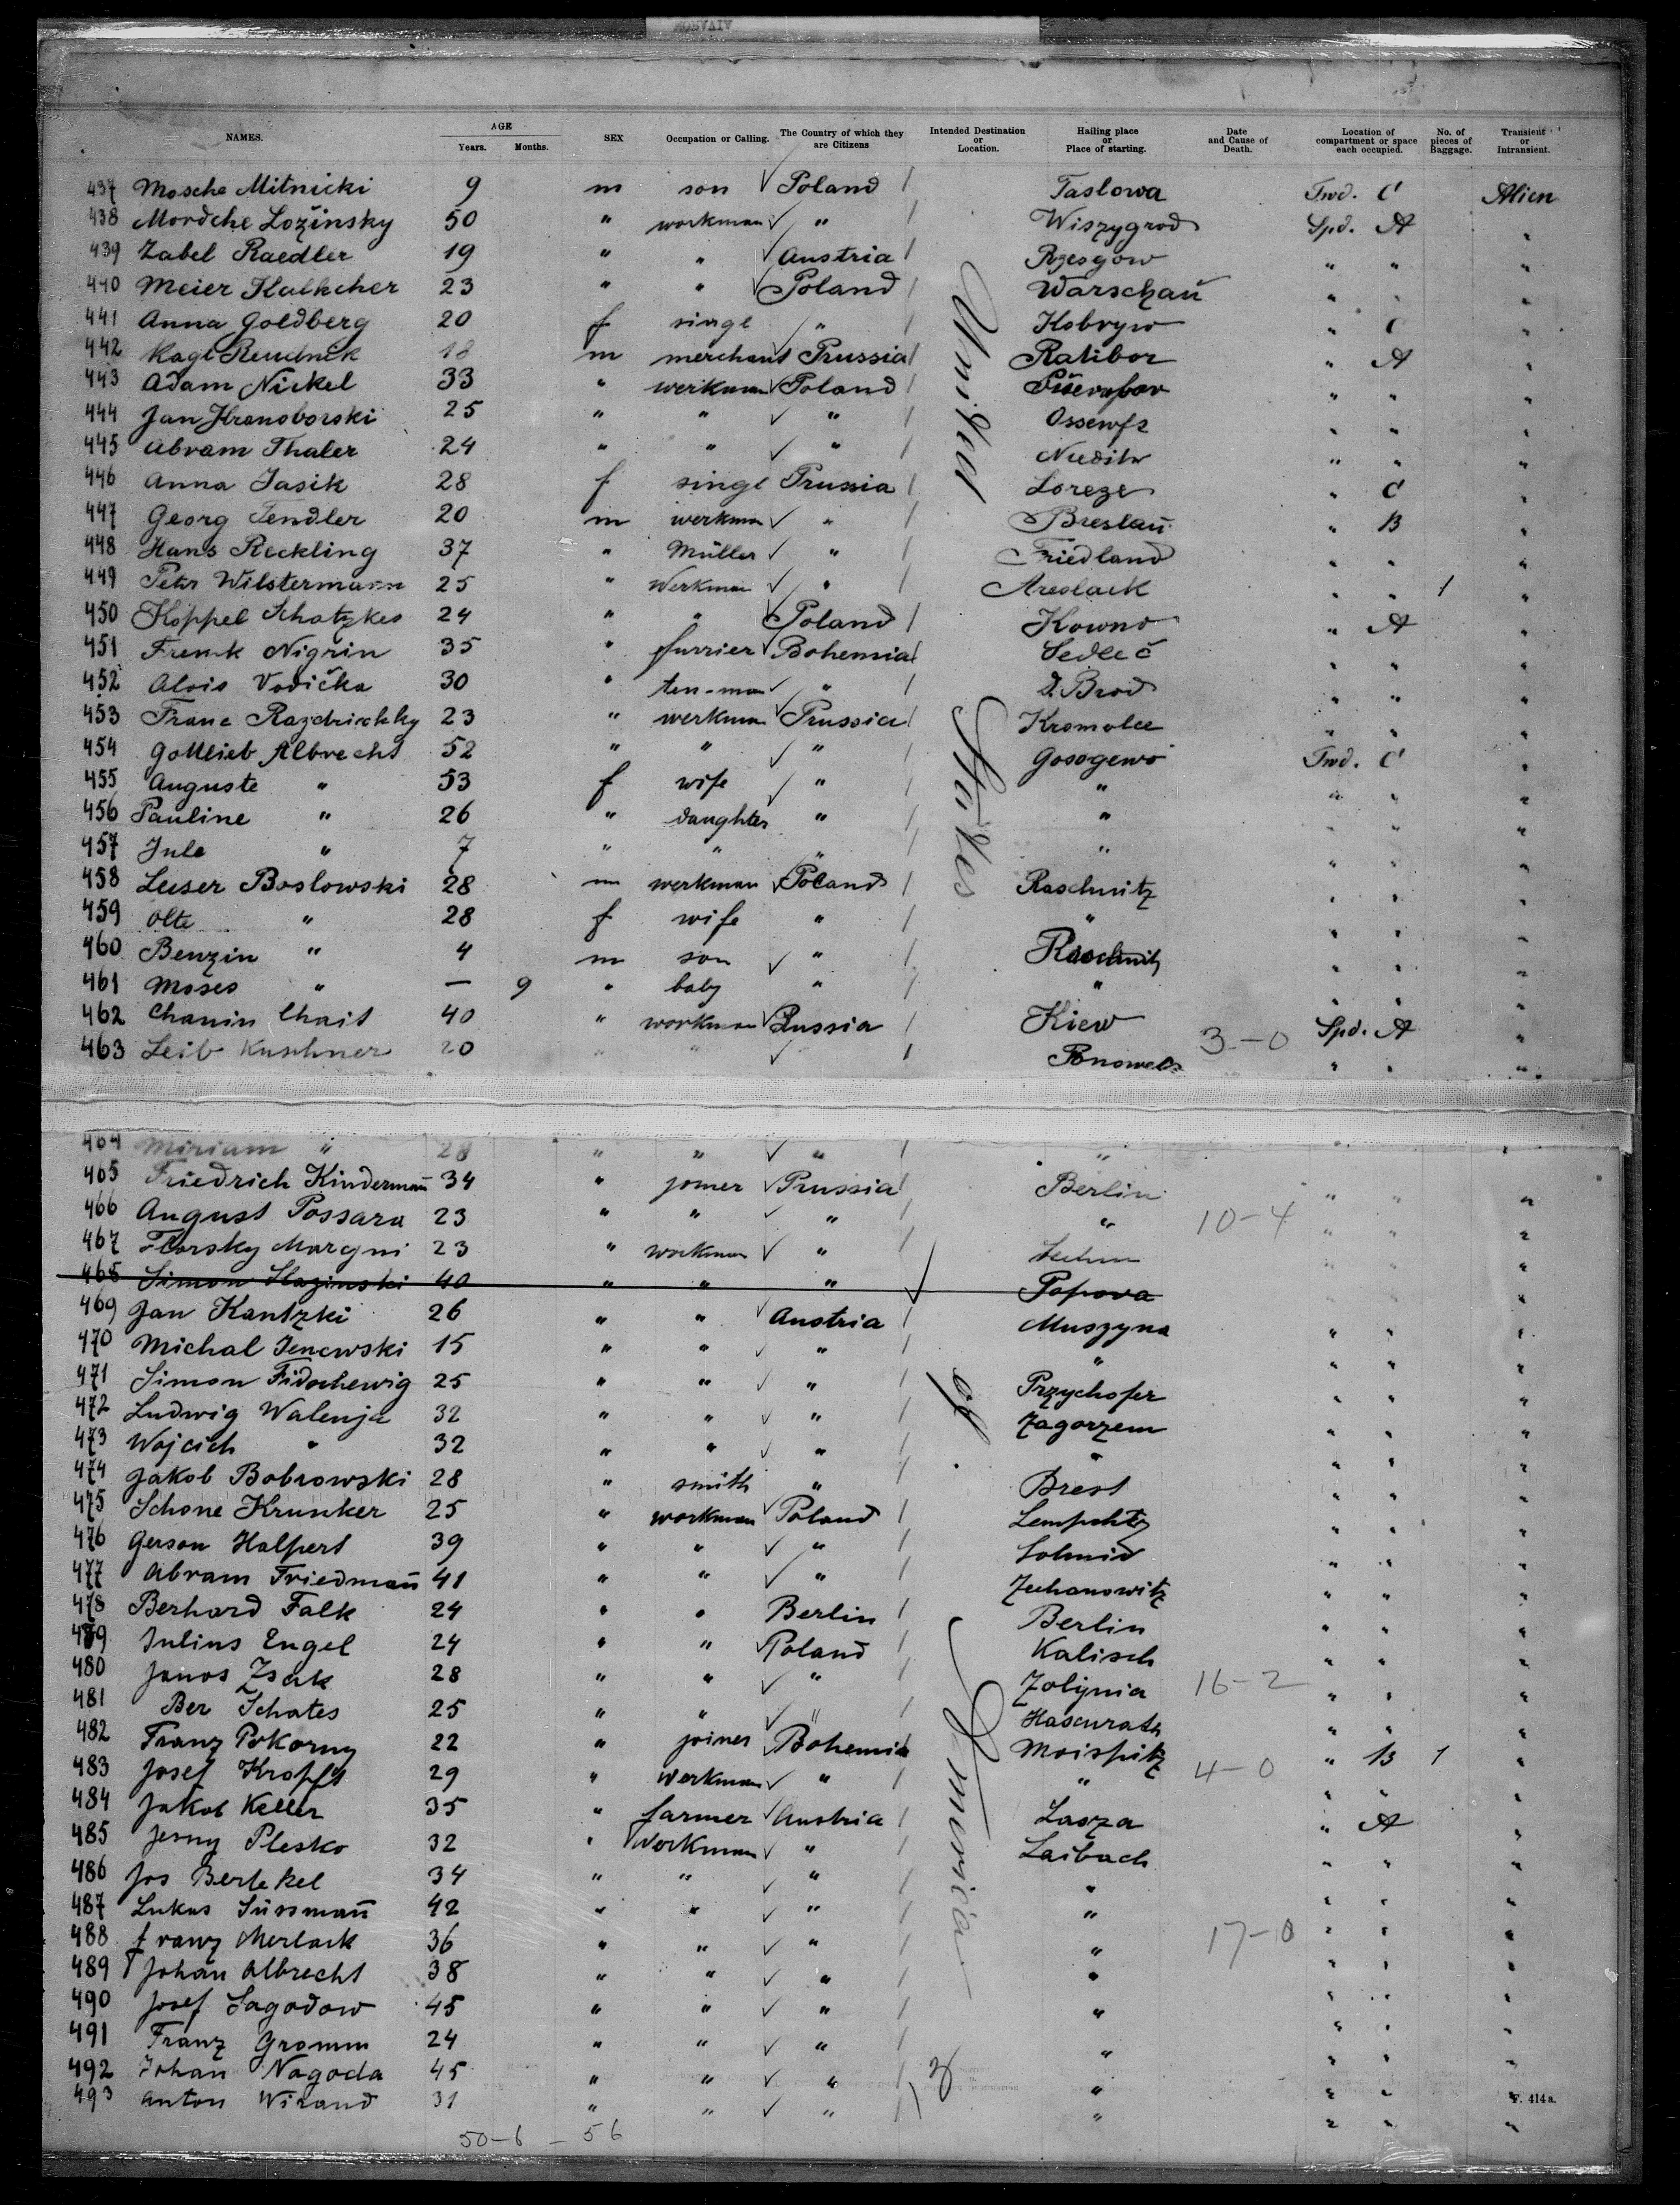 NAMES. AGE Years. Months. SEX Occupation or Calling. The Country of which they are Citizens Intended Destination or Location. Hailing place or Place of starting. Date and Cause of Death. Location of compartment or space each occupied. No. of pieces of Baggage. Transient or Intransient.
437 Mosche Mitnicki 9 m son Poland Taslowa Fwd. C Alien
438 Mordche Lozinsky 50 " workman " Wiszygrod Spd. A "
439 Zabel Raedler 19 " " Austria Rzesgow " " "
440 Meier Kalkcher 23 " " Poland Warschaü " " "
441 Anna Goldberg 20 f singl " Kobryn " C "
442 Ragl Reudnik 18 m merchant Prussia Ratibor " A "
443 Adam Nickel 33 " werkman Poland " " "
444 Jan Kranoborski 25 " " " " " "
445 Abram Thaler 24 " " " " " "
446 Anna Jasik 28 f singl Prussia Loreze " C "
447 Georg Tendler 20 m werkman " Breslaü " B "
448 Hans Reckling 37 " Müller " Friedland " " "
449 Petr Wilstermann 25 " Werkman " Areslack " " 1 "
450 Koppel Schatzkes 24 " " Poland Kowno " A "
451 Frenk Nigrin 35 " furrier Bohemia Sedleč " " "
452 Alois Vodička 30 " ten-man " d. Brod " " "
453 Franc 23 " werkman Prussia Kromolee " " "
454 Gottlieb Albrecht 52 " " " Gosogewo Fwd. C "
455 Auguste " 53 f wife " " " " "
456 Pauline " 26 " daughter " " " " "
457 Jule " 7 " " " " " " "
458 Leiser Boslowski 28 m werkman Poland Raschnitz " " "
459 Olte " 28 f wife " " " " "
460 Benzin " 4 m son " Raschnitz " " "
461 Moses " — 9 " baby " " " " "
462 Chanin Chait 40 " workman Russia Kiew 3-0 Spd. A "
463 Leib Kuschner 20 " " Ponowels " " "
464 Miriam " 28 " " " " " " "
465 Friedrich Kindermañ 34 " joiner Prussia Berlin " " "
466 August Possara 23 " " " " 10-4 " " "
467 Florsky Margni 23 " workman " " " "
468 Simon Slazinski 40 " " " Popova " "
469 Jan Kantzki 26 " " Austria Muszyna " " "
470 Michal Jenewski 15 " " " " " " "
471 Simon Fidochewig 25 " " " Przychofer " " "
472 Ludwig Walenja 32 " " " Zagorzem " " "
473 Wojcich " 32 " " " " " " "
474 Jakob Bobrowski 28 " smith " Brest " " "
475 Schone Krunker 25 " workman Poland " " "
476 Gerson Halpert 39 " " " Sohnid " " "
477 Abram Friedmañ 41 " " " Zechanowitz " " "
478 Berhard Falk 24 " " Berlin Berlin " " "
479 Julius Engel 24 " " Poland Kalisch " " "
480 Janos Zsak 28 " " " Zolynia 16-2 " " "
481 Ber Schates 25 " " " " " "
482 Franz Pokorny 22 " joiner Bohemia Moispitz " B 1 "
483 Josef Kropft 29 " werkman " " 4-0 " " "
484 Jakob Keller 35 " farmer Austria Lasza " A "
485 Jerny Plesko 32 " Werkman " Laibach " " "
486 Jos Bertekel 34 " " " " " " "
487 Lukas Süssmañ 42 " " " " " " "
488 Franz Merlack 36 " " " " 17-0 " " "
489 Johan Albrecht 38 " " " " " " "
490 Josef Sagodow 45 " " " " " " "
491 Franz Gromm 24 " " " " " " "
492 Johan Nagoda 45 " " " " " " "
493 Anton Wirand 31 " " " " " " "
United States of America
F. 414a.
50-6-56